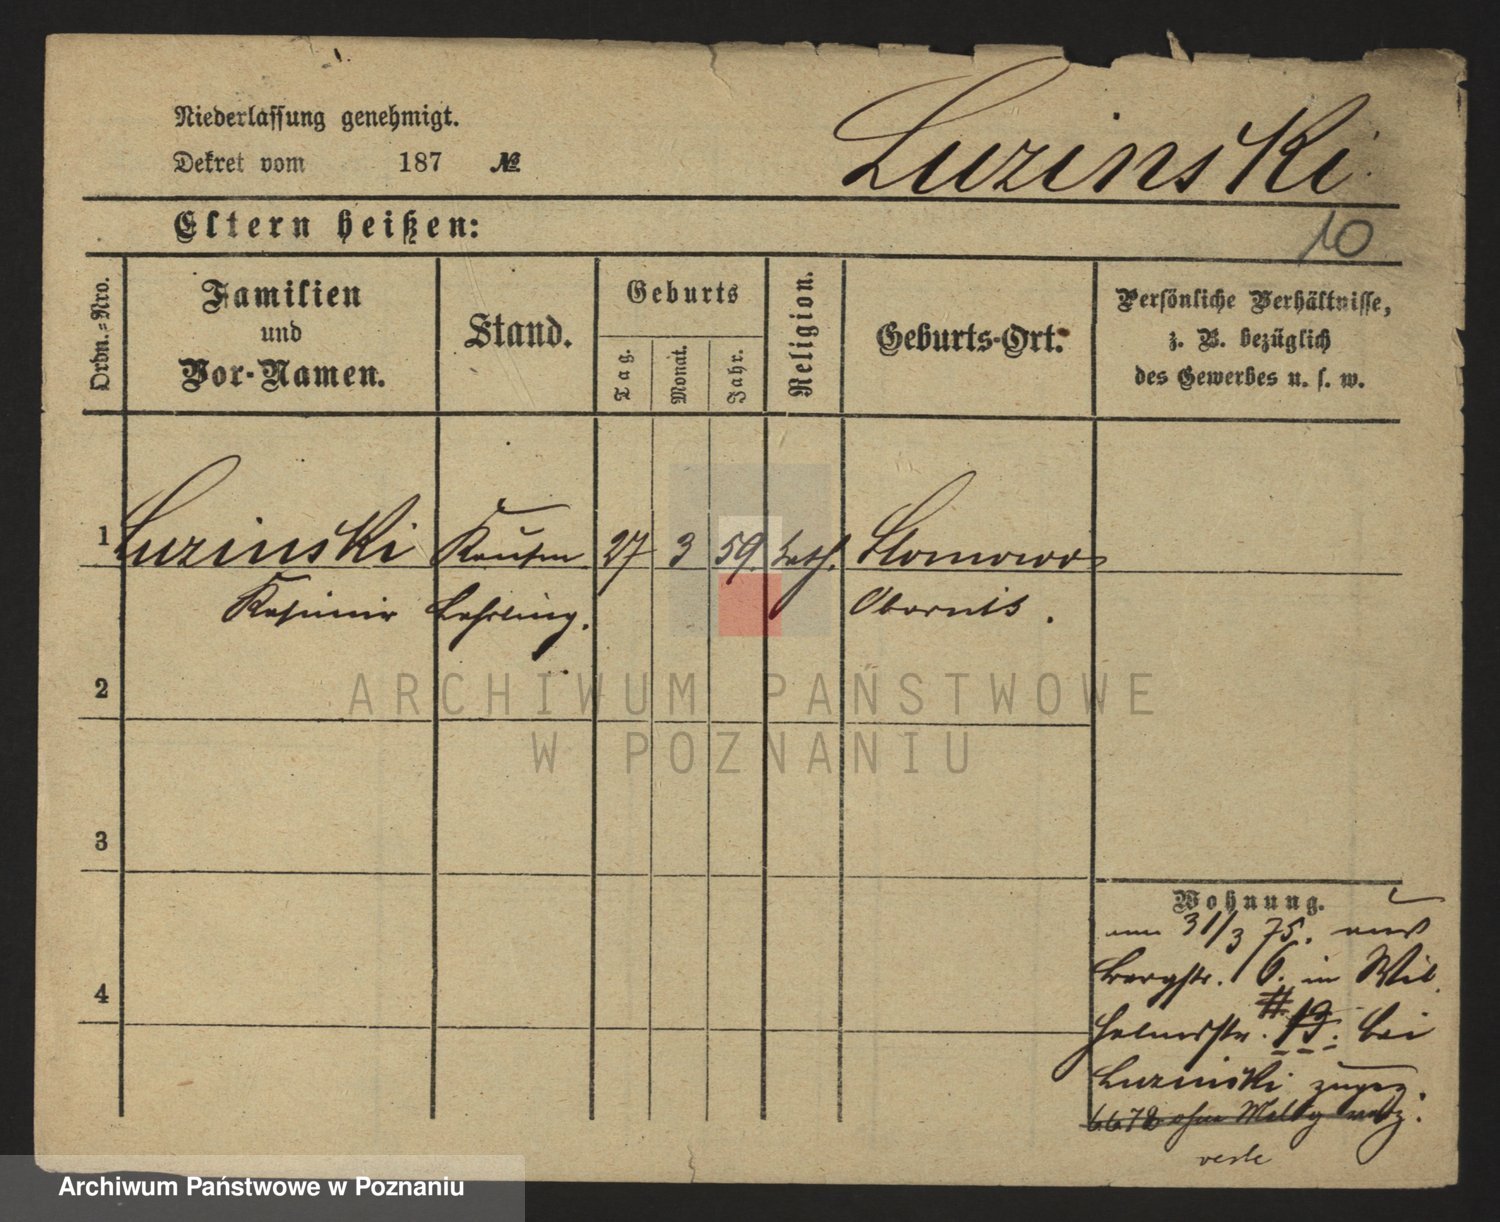 Niederlassung genehmigt.
Dekret vom 187 №
Luzinski
Eltern heißen:
10
Ordn.-Nro.
Familien
und
Vor-Namen.
Stand.
Geburts
Tag.
Monat.
Jahr.
Religion.
Geburts-Ort.
Persönliche Verhältnisse,
z. B. bezüglich
des Gewerbes u. s. w.
1 Luzinski Kaufm 27 3 59. kath. Slomowo
Kasimir Lehrling. Obornik.
2
ARCHIWUM PAŃSTWOWE
W POZNANIU
3
Wohnung.
am 31/3 75. aus
Bergstr. 6. in Wil
4
helmsstr. 13. bei
Luzinski zugez.
ohne Meldg
Archiwum Państwowe w Poznaniu